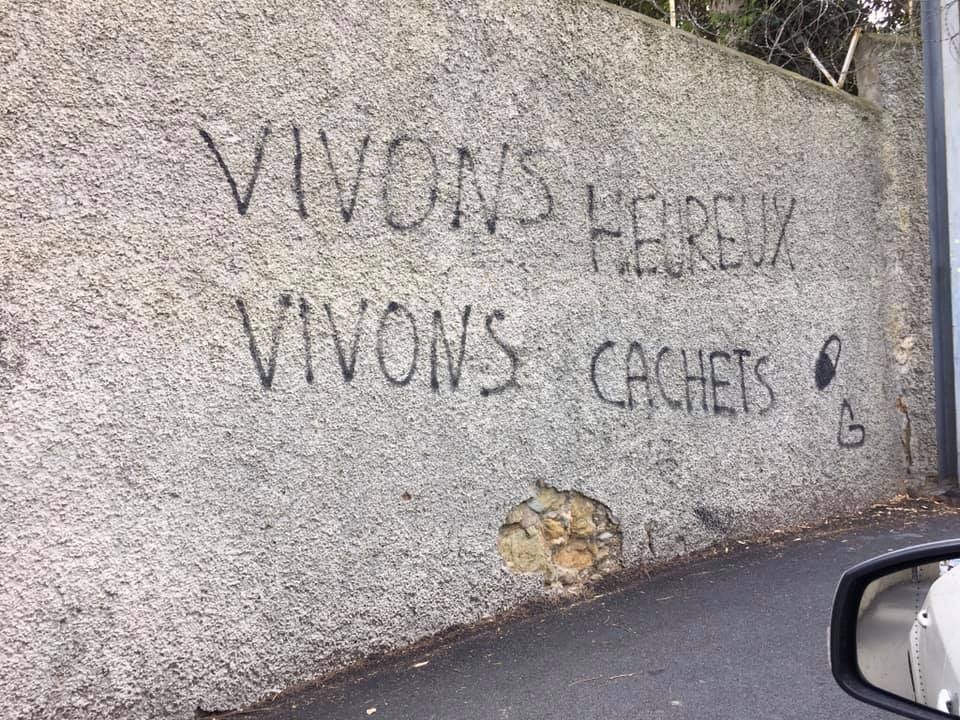 VIVONS HEUREUX
VIVONS CACHETS
G